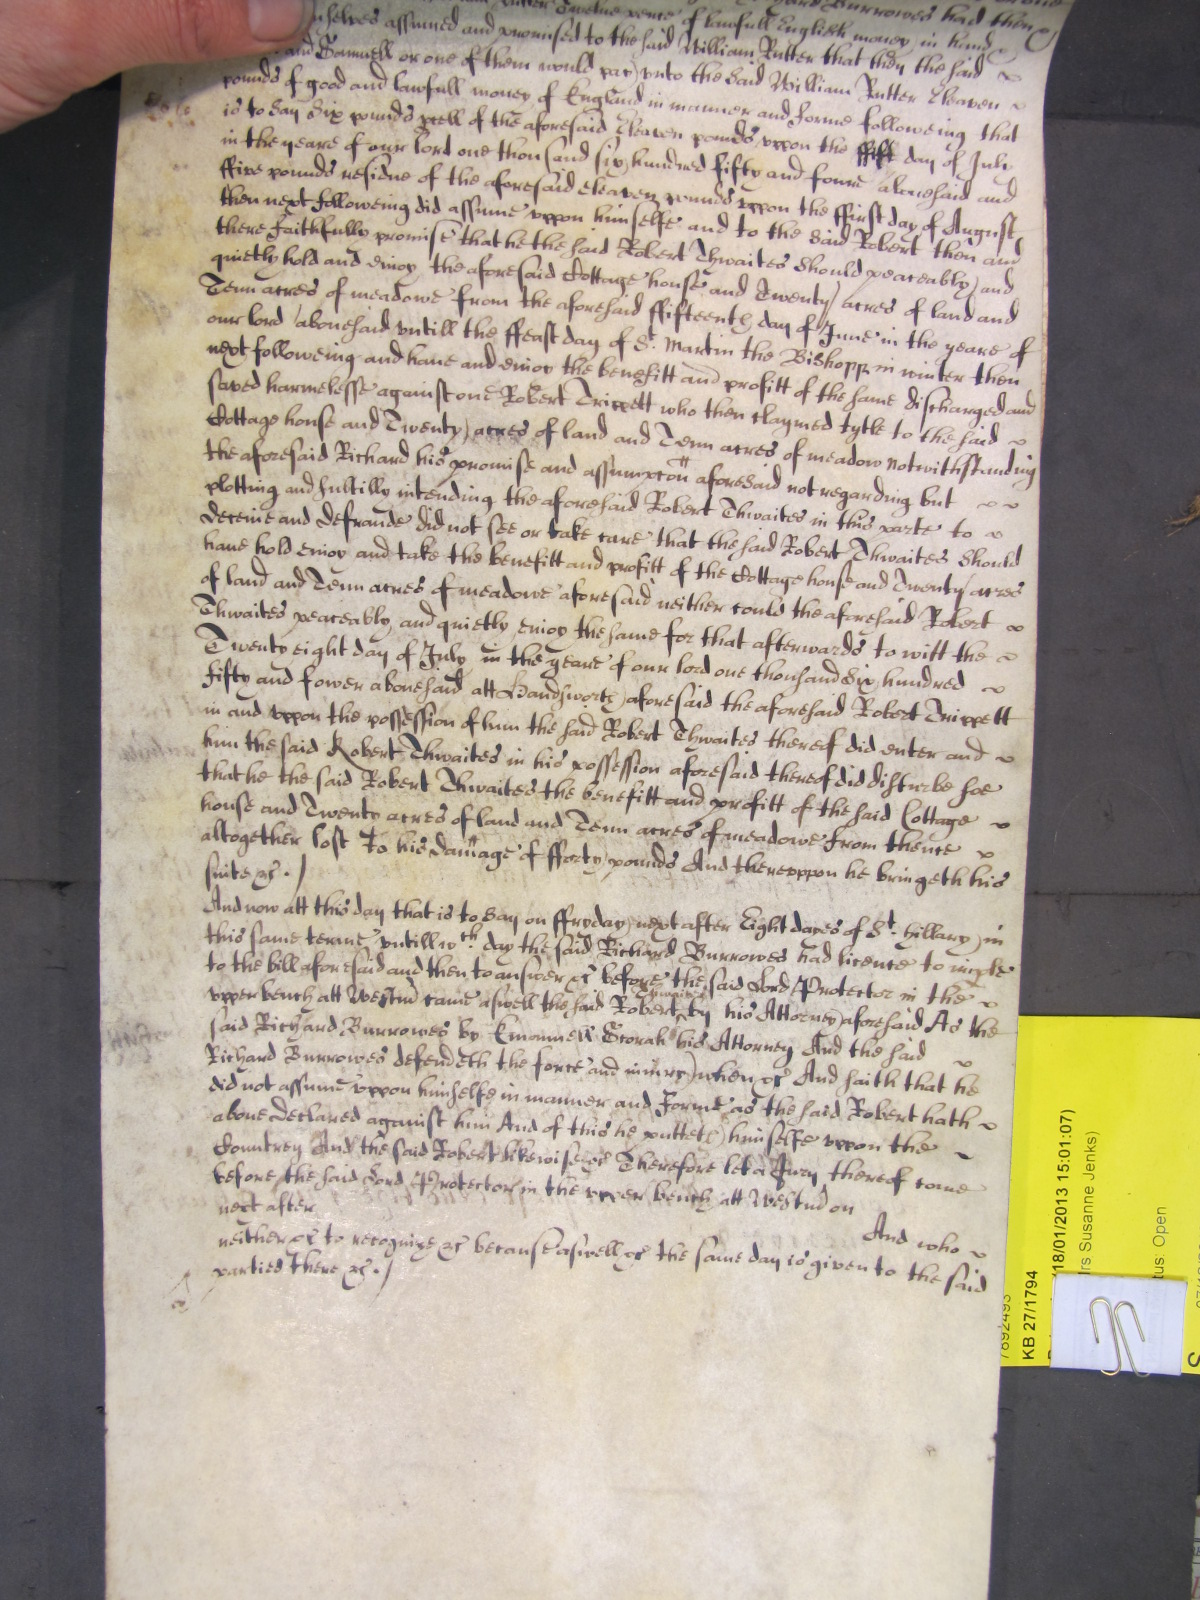 Rutter Twelve pence of lawfull English money in hand Burrowes had then
mselves assumed and promised to the said William Rutter that they the said
and Samuell or one of them would pay unto the said William Rutter Eleaven
pounds of good and lawfull money of England in manner and forme followeing that
is to say Six pounds pcell of the aforesaid Eleaven pounds uppon the day of July
in the yeare of our lord one thousand six hundred fifty and foure abovesaid and
ffive pounds residue of the aforesaid eleaven pounds uppon the ffirst day of August
then next followeing did assume uppon himselfe and to the said Robert then and
there faithfully promise that he the said Robert Thwaites should peaceably and
quietly hold and enioy the aforesaid Cottage house and Twenty acres of land and
Tenn acres of meadowe from the aforesaid ffifteenth day of June in the yeare of
our lord abovesaid untill the ffeast day of St. Martin the Bishopp in winter then
next followeing and have and enioy the benefitt and profitt of the same discharged and
saved harmelesse against one Robert Trippett who then claymed tytle to the said
Cottage house and Twenty acres of land and Tenn acres of meadow notwithstanding
the aforesaid Richard his promise and assumpcon aforesaid not regarding but
plotting and subtilly intending the aforesaid Robert Thwaites in this parte to
deceive and defraude did not see or take care that the said Robert Thwaites should
have hold enioy and take the benefitt and profitt of the Cottage house and Twenty acres
of land and Tenn acres of meadowe aforesaid neither could the aforesaid Robert
Thwaites peaceably and quietly enioy the same for that afterwards to witt the
Twenty eight day of July in the yeare of our lord one thousand six hundred
fifty and fower abovesaid att Handsworth aforesaid the aforesaid Robert Trippett
in and uppon the possession of him the said Robert Thwaites thereof did enter and
him the said Robert Thwaites in his possession aforesaid thereof did disturbe soe
that he the said Robert Thwaites the benefitt and profitt of the said Cottage
house and Twenty acres of land and Tenn acres of meadowe from thence
altogether lost To his damage of fforty pounds And thereuppon he bringeth his
suite &c. /
And now att this day that is to say on ffryday next after Eight dayes of St. Hillary in
this same terme untill wch day the said Richard Burrowes had licence to imple
to the bill aforesaid and then to answer &c before the said Lord Protector in the
upper bench att Westm came aswell the said Robert Thwaites by his Attorney aforesaid As the
said Richard Burrowes by Emanuell his Attorney And the said
Richard Burrowes defendeth the force and iniury when &c And saith that he
did not assume uppon himselfe in manner and Forme as the said Robert hath
above declared against him And of this he putteth himselfe uppon the
Countrey And the said Robert likewise &c Therefore let a Jury thereof come
before the said Lord Protector in the upper bench att Westm on
next after And who
neither &c to recognize &c because aswell &c the same day is given to the said
parties there &c. /
7892493
KB 27/1794
18/01/2013 15:01:07)
rs Susanne Jenks)
tus: Open